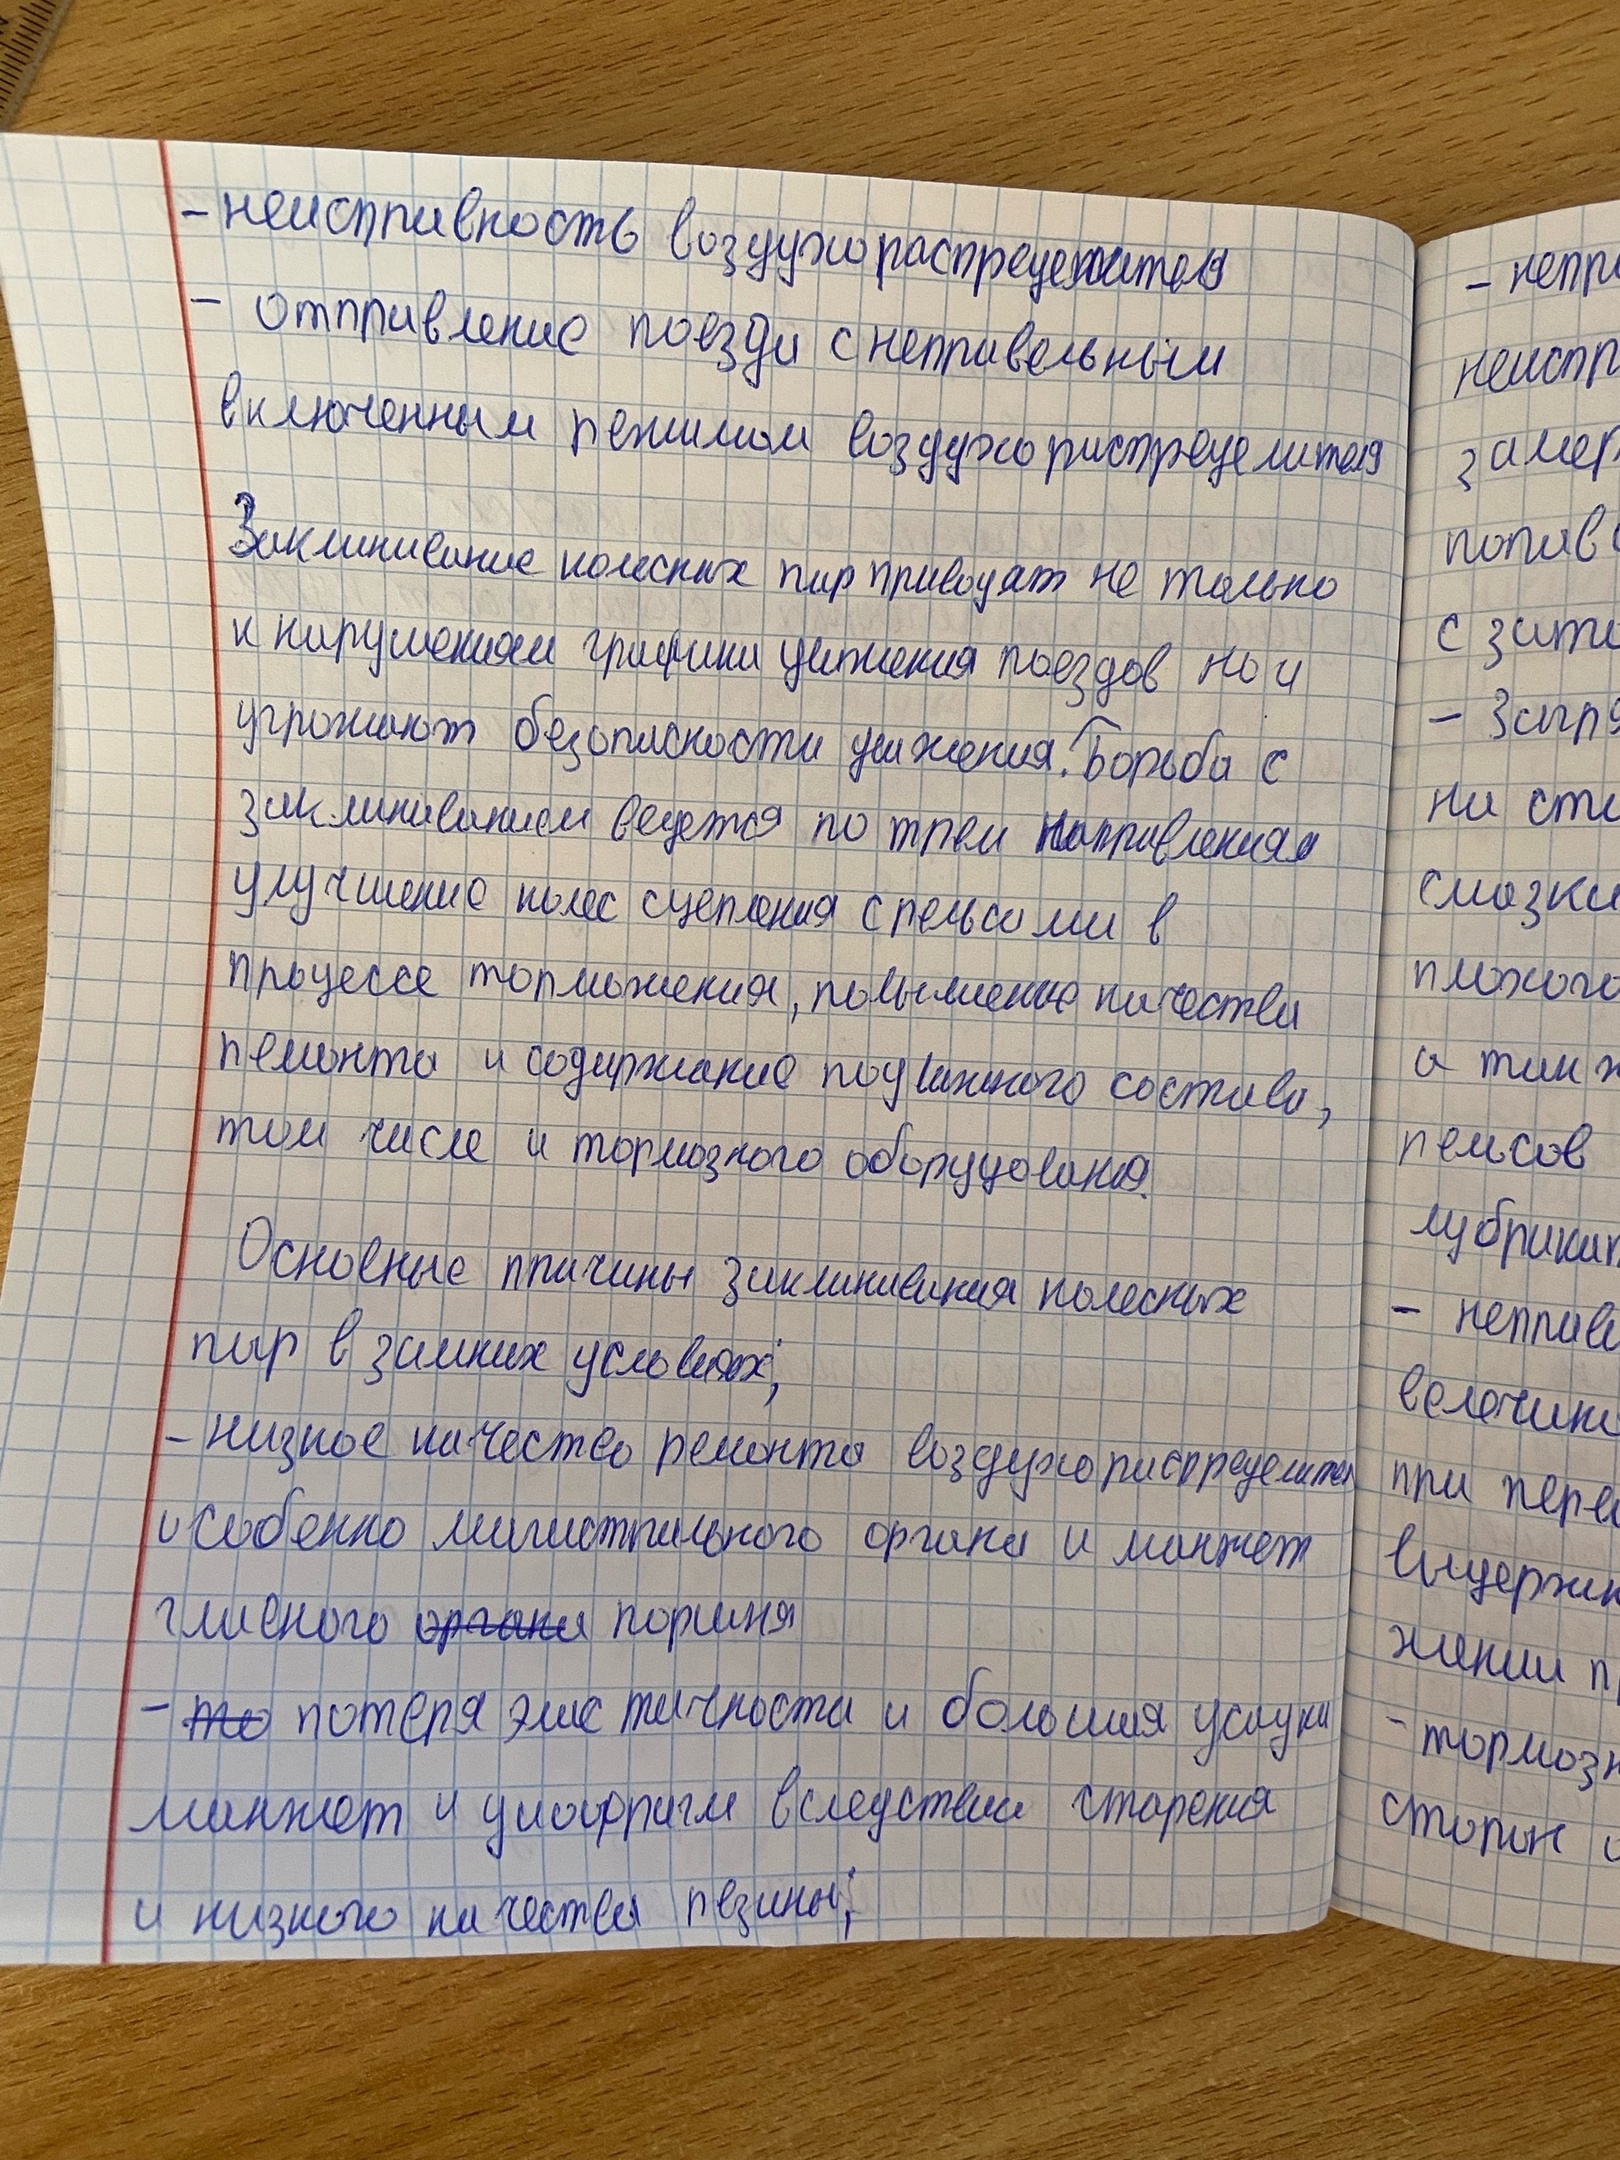 - неисправность воздухораспределителя
- отправление поезда с неправельным
включенным режимом воздухораспределителя
Заклинивание колесных пар приводят не только
к нарушениям графика движения поездов но и
угрожают безопасности движения. Борьба с
заклиниванием ведется по трем направлениям
улучшение колес сцепления с рельсами в
процессе торможения, повышение качества
ремонта и содержание подвижного состава,
том числе и тормозного оборудования.
Основные причины заклинивания колесных
пар в зимних условиях;
- низкое качество ремонта воздухораспределител
особенно магистрального органа и манжет
главного органа поршня
- то потеря эластичности и большая усадка
манжет и диафрагм вследствии старения
и низкого качества резины;
- непра
неиспр
замер
попав
с зато
- Загря
на ста
смазки
плохого
а так ж
рельсов
лубрикат
- неправи
велечина
при пере
выдержк
жении п
- тормозн
сторон